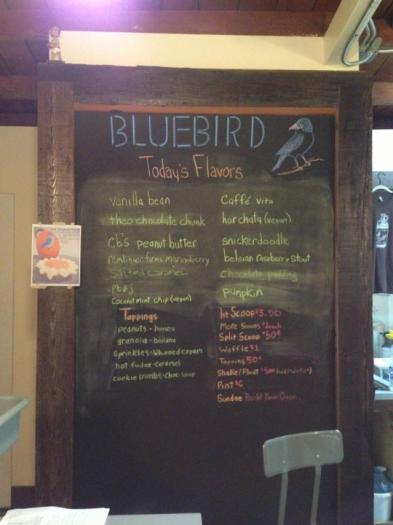 BLUEBIRD
Today's Flavors
vanilla bean
theo chocolate chunk
CB's peanut butter
remlinger farms marionberry
salted caramel
pb&j
Coconut mint chip (vegan)
Caffé vita
horchata (vegan)
snickerdoodle
belgian raspberry stout
Chocolate pudding
pumpkin
Toppings
peanuts - honey
granola - banana
sprinkles - Whipped cream
hot fudge - caramel
cookie crumbs - choc. soup
1st Scoop $3.50
More Scoops
Split Scoop +50¢
Waffle $1
Topping 50¢
Shake/Float
Pint
Sundae Build Your Own